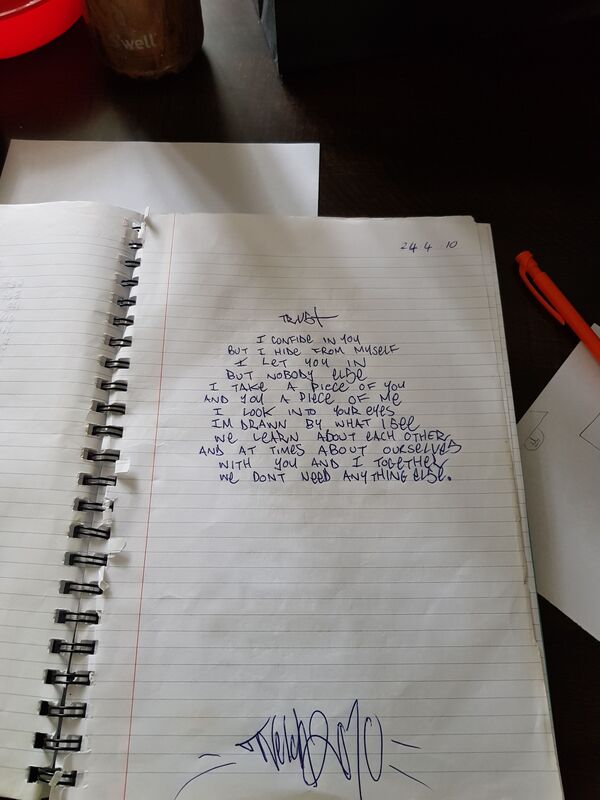 swell
24.4.10
TRUST
I CONFIDE IN YOU
BUT I HIDE FROM MYSELF
I LET YOU IN
BUT NOBODY ELSE
I TAKE A PIECE OF YOU
AND YOU A PIECE OF ME
I LOOK INTO YOUR EYES
IM DRAWN BY WHAT I SEE
WE LEARN ABOUT EACH OTHER
AND AT TIMES ABOUT OURSELVES
WITH YOU AND I TOGETHER
WE DONT NEED ANYTHING ELSE.